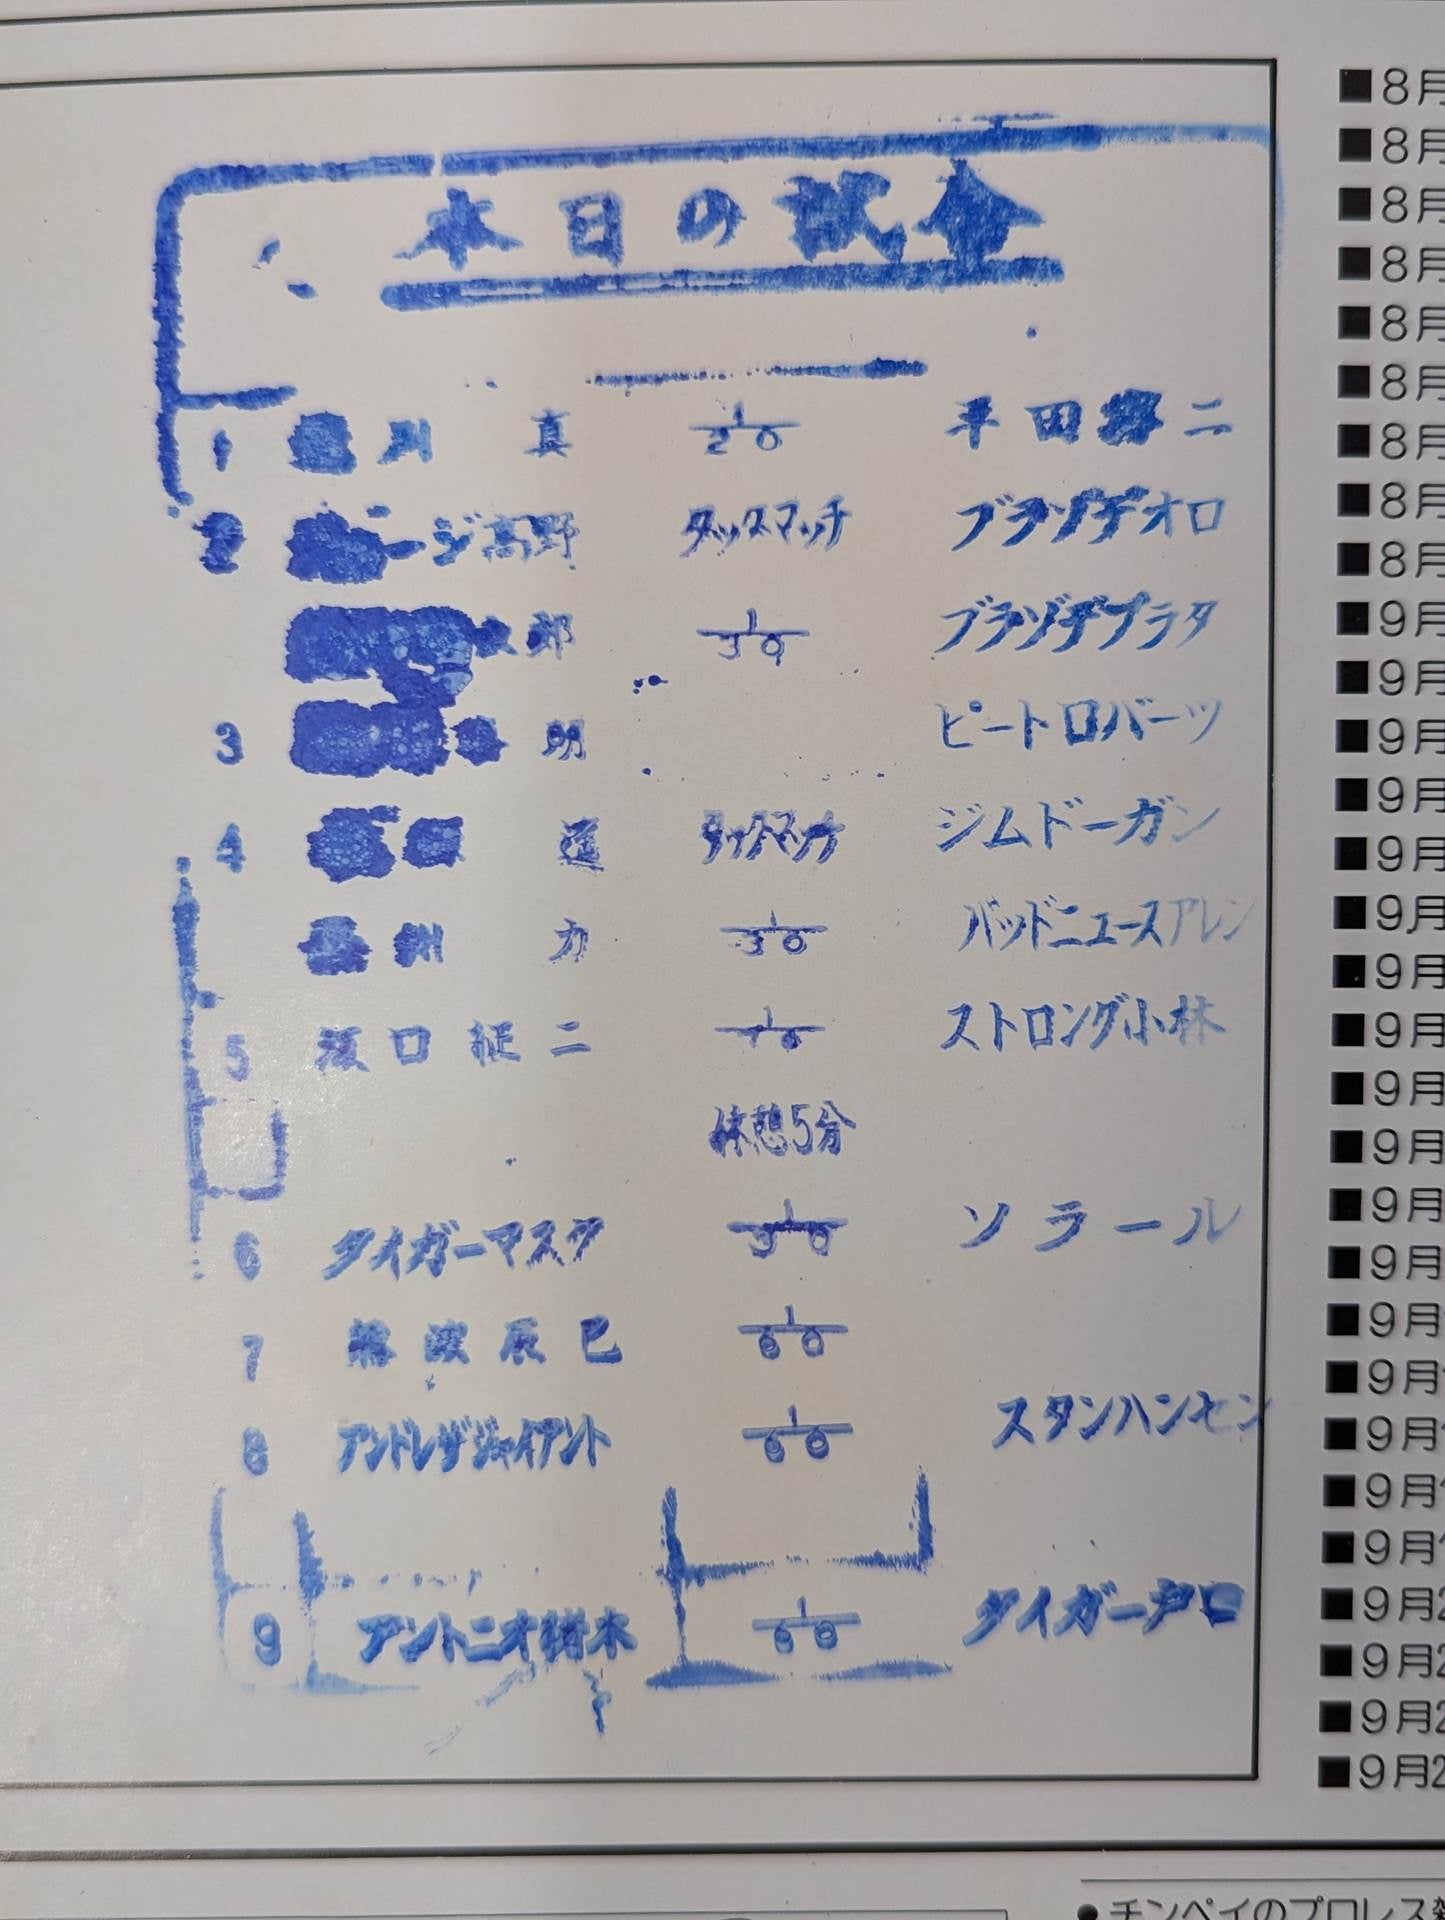 本日の試合
1 刈 真 1/20 平田淳二
2 ージ高野 タッグマッチ ブラソデオロ
郎 1/30 ブラソデプラタ
3 明 ピートロバーツ
4 道 タッグマッチ ジムドーガン
州 力 1/30 バッドニュースアレン
5 坂口征二 ストロング小林
休憩5分
6 タイガーマスク 1/30 ソラール
7 藤波辰巳 1/60
8 アンドレザジャイアント 1/60 スタンハンセン
9 アントニオ猪木 1/60 タイガー戸口
■8月
■8月
■8月
■8月
■8月
■8月
■8月
■8月
■8月
■9月
■9月
■9月
■9月
■9月
■9月
■9月
■9月
■9月
■9月
■9月
■9月
■9月
■9月
■9月
■9月
■9月
■9月2
■9月2
■9月2
■9月2
●チンペイのプロレス